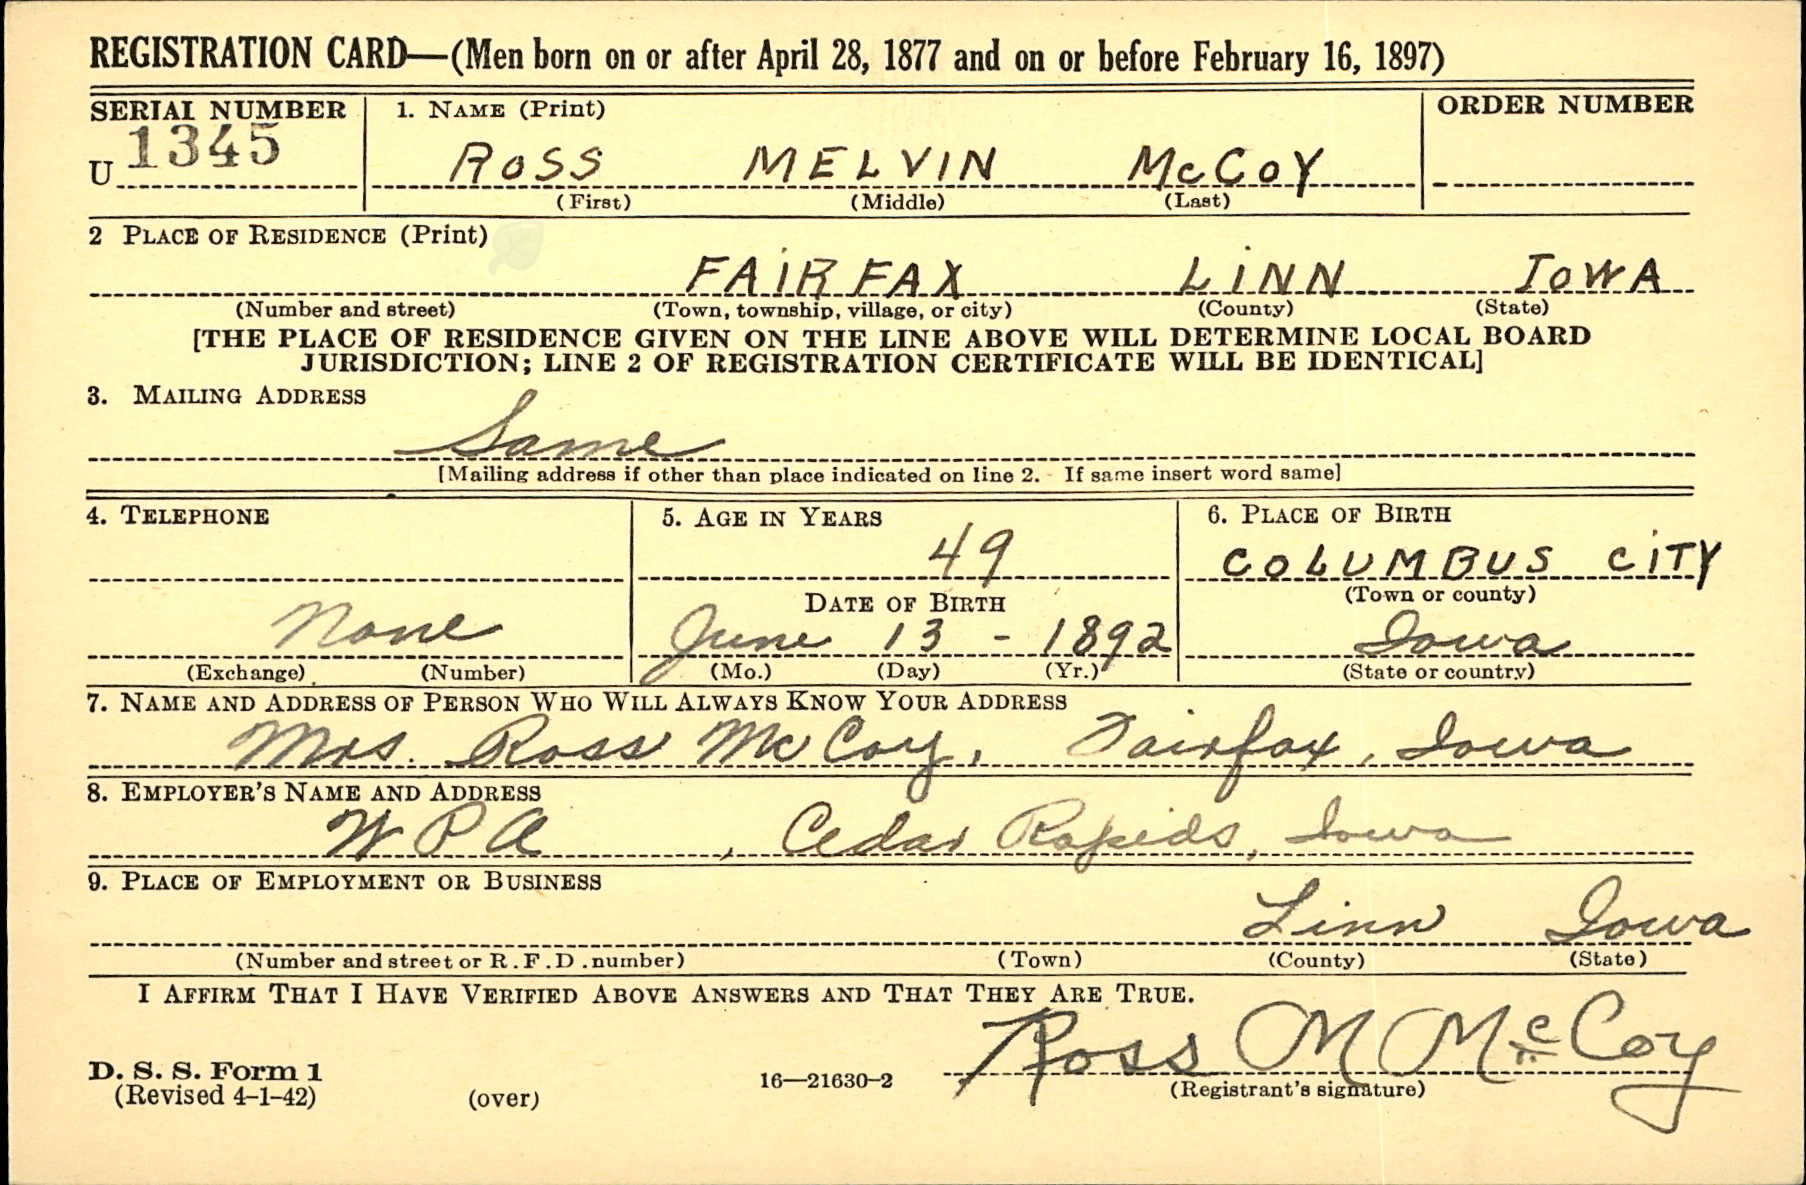 REGISTRATION CARD—(Men born on or after April 28, 1877 and on or before February 16, 1897)
SERIAL NUMBER 1. NAME (Print) ORDER NUMBER
U 1345 ROSS MELVIN McCOY
(First) (Middle) (Last)
2 PLACE OF RESIDENCE (Print)
FAIRFAX LINN IOWA
(Number and street) (Town, township, village, or city) (County) (State)
[THE PLACE OF RESIDENCE GIVEN ON THE LINE ABOVE WILL DETERMINE LOCAL BOARD
JURISDICTION; LINE 2 OF REGISTRATION CERTIFICATE WILL BE IDENTICAL]
3. MAILING ADDRESS
Same
[Mailing address if other than place indicated on line 2. If same insert word same]
4. TELEPHONE 5. AGE IN YEARS 6. PLACE OF BIRTH
49 COLUMBUS CITY
DATE OF BIRTH (Town or county)
None June 13 - 1892 Iowa
(Exchange) (Number) (Mo.) (Day) (Yr.) (State or country)
7. NAME AND ADDRESS OF PERSON WHO WILL ALWAYS KNOW YOUR ADDRESS
Mrs. Ross McCoy, Fairfax, Iowa
8. EMPLOYER'S NAME AND ADDRESS
W P A, Cedar Rapids, Iowa
9. PLACE OF EMPLOYMENT OR BUSINESS
Linn Iowa
(Number and street or R.F.D. number) (Town) (County) (State)
I AFFIRM THAT I HAVE VERIFIED ABOVE ANSWERS AND THAT THEY ARE TRUE.
Ross M McCoy
D. S. S. Form 1
(Revised 4-1-42) (over) 16—21630-2 (Registrant's signature)